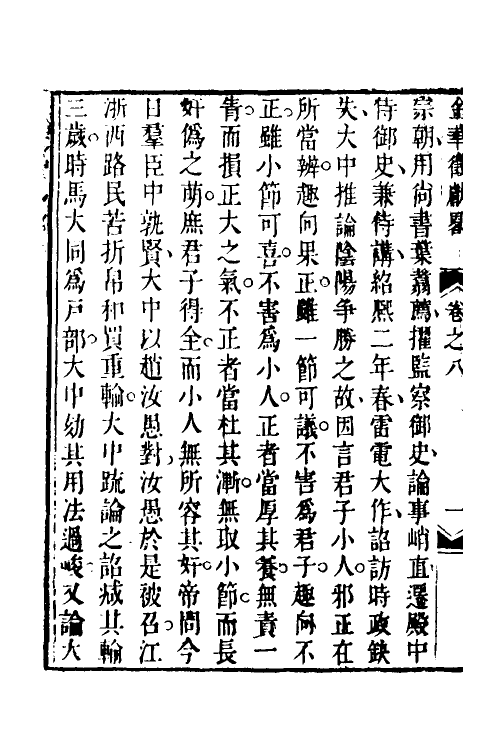 金華徵獻畧 卷之八 一
宗朝用尚書葉翥薦擢監察御史論事峭直遷殿中
侍御史兼侍講紹熙二年春雷電大作詔訪時政缺
失大中推論陰陽爭勝之故因言君子小人邪正在
所當辨趣向果正雖一節可議不害爲君子趣向不
正雖小節可喜不害爲小人正者當厚其養無責一
眚而損正大之氣不正者當杜其漸無取小節而長
奸僞之萌庶君子得全而小人無所容其奸帝問今
日羣臣中孰賢大中以趙汝愚對汝愚於是被召江
浙西路民苦折帛和買重輸大中疏論之詔減其輸
三歲時馬大同爲戸部大中劾其用法過峻又論大